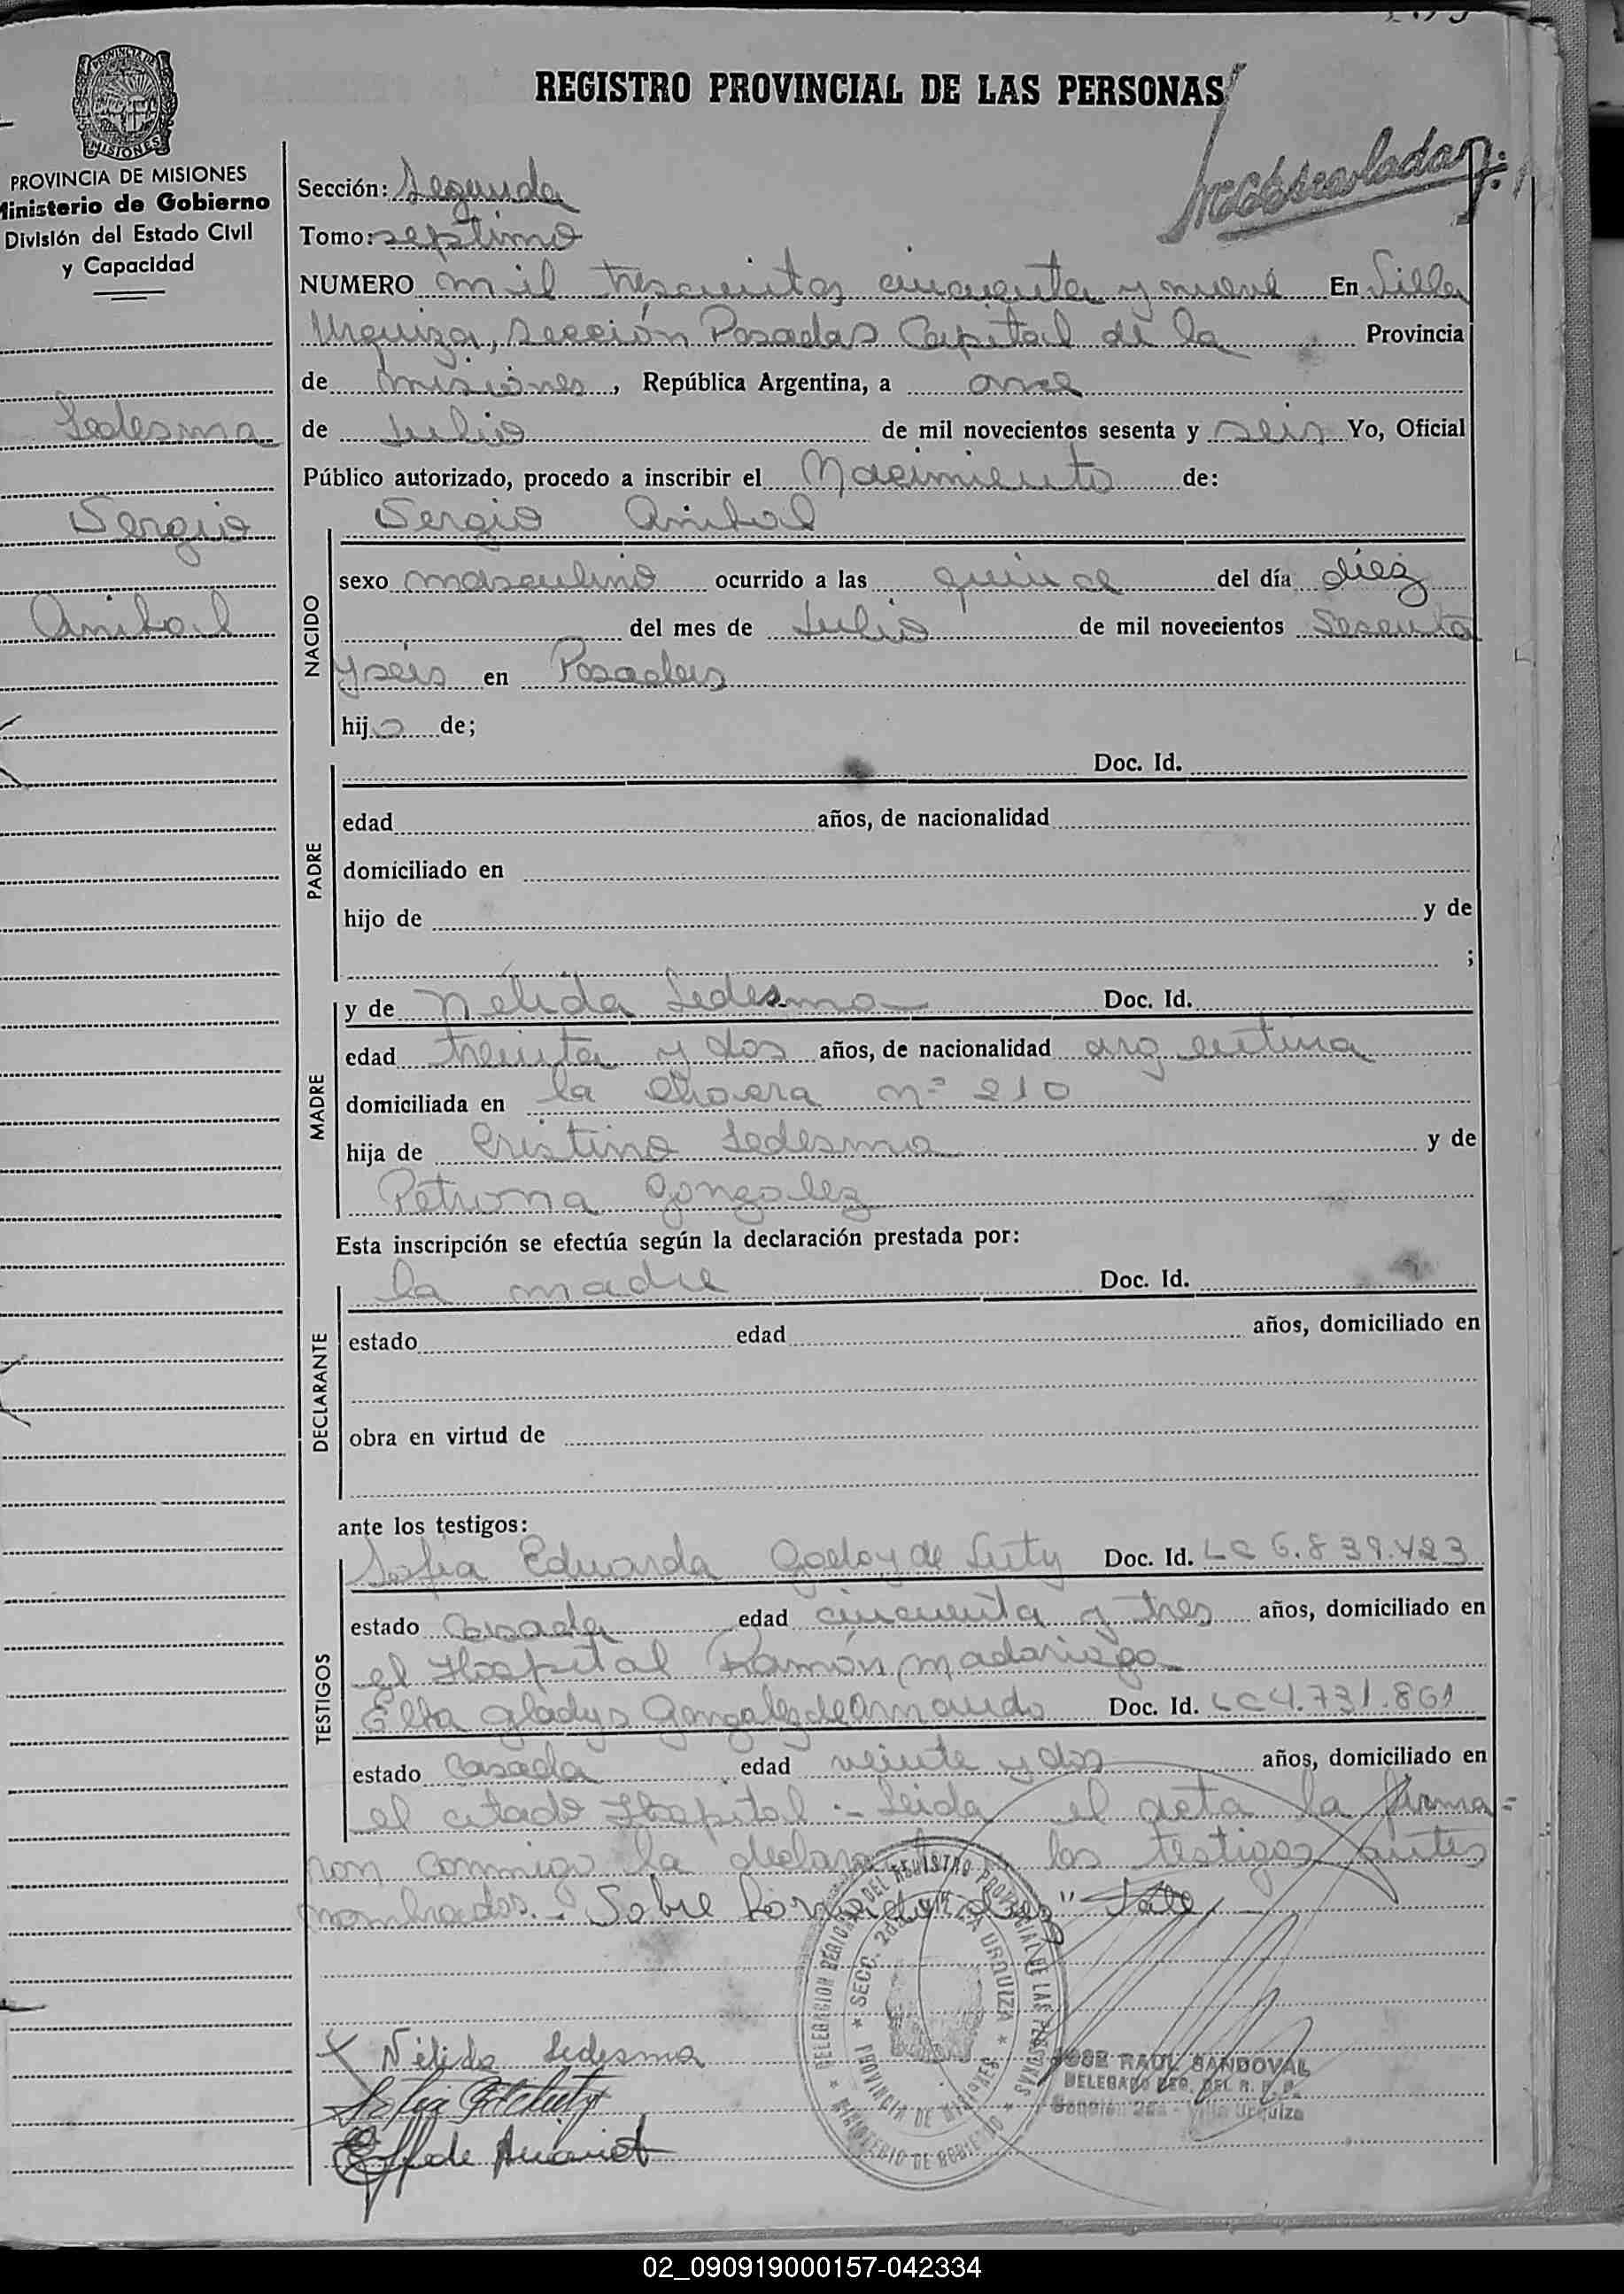 REGISTRO PROVINCIAL DE LAS PERSONAS
MISIONES
PROVINCIA DE MISIONES
Ministerio de Gobierno
División del Estado Civil
y Capacidad
Ledesma
Sergio
Anibal
Sección: Segunda
Tomo: septimo
NUMERO mil trescientos cincuenta y nueve En Villa
Urquiza, Sección Posadas Capital de la Provincia
de Misiones, República Argentina, a once
de Julio de mil novecientos sesenta y seis Yo, Oficial
Público autorizado, procedo a inscribir el Nacimiento de:
NACIDO
Sergio Anibal
sexo masculino ocurrido a las quince del día diez
del mes de Julio de mil novecientos sesenta
y seis en Posadas
hijo de;
PADRE
Doc. Id.
edad años, de nacionalidad
domiciliado en
hijo de y de
;
MADRE
y de Nélida Ledesma Doc. Id.
edad treinta y dos años, de nacionalidad argentina
domiciliada en la Chacra nº 210
hija de Cristino Ledesma y de
Petrona Gonzalez
Esta inscripción se efectúa según la declaración prestada por:
DECLARANTE
la madre Doc. Id.
estado edad años, domiciliado en
obra en virtud de
ante los testigos:
TESTIGOS
Sofia Eduarda Godoy de Doc. Id. LC 6.839.423
estado casada edad cincuenta y tres años, domiciliado en
el Hospital Ramón Madariaga
Elba Gladys Gonzalez de Doc. Id. LC 4.731.861
estado casada edad veinte y dos años, domiciliado en
el citado Hospital.- Leida el acta la firma=
ron conmigo la declarante los testigos antes
nombrados.- Sobre borrado "diez" Vale
Nélida Ledesma
DELEGACION REGIONAL DEL REGISTRO PROVINCIAL DE LAS PERSONAS
MINISTERIO DE GOBIERNO
SECC. 2da. VILLA URQUIZA
PROVINCIA DE MISIONES
JOSE RAUL SANDOVAL
DELEGADO REG. DEL R. P. P.
Sección 2da - Villa Urquiza
02_090919000157-042334